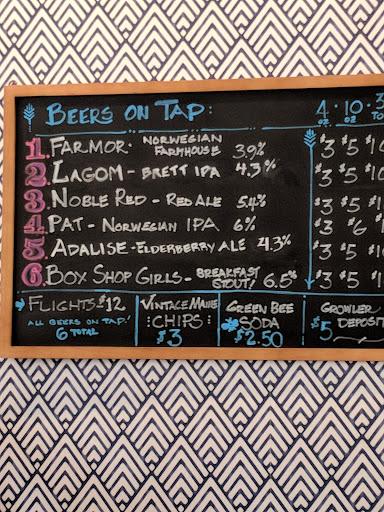 BEERS ON TAP: 4 OZ · 10 OZ · 3
1. FARMOR · NORWEGIAN FARMHOUSE 3.9% $3 $5 $10
2. LAGOM - BRETT IPA 4.3% $3 $5 $1
3. NOBLE RED - RED ALE 5.4% $3 $5 $1
4. PAT - NORWEGIAN IPA 6% $3 $6 $
5. ADALISE - ELDERBERRY ALE 4.3% $3 $5 $1
6. BOX SHOP GIRLS - BREAKFAST STOUT! 6.5% $3 $5 $
FLIGHTS $12
ALL BEERS ON TAP!
6 TOTAL
VINTAGE MAINE
:CHIPS:
$3
GREEN BEE
SODA
$2.50
GROWLER
DEPOSIT
$5